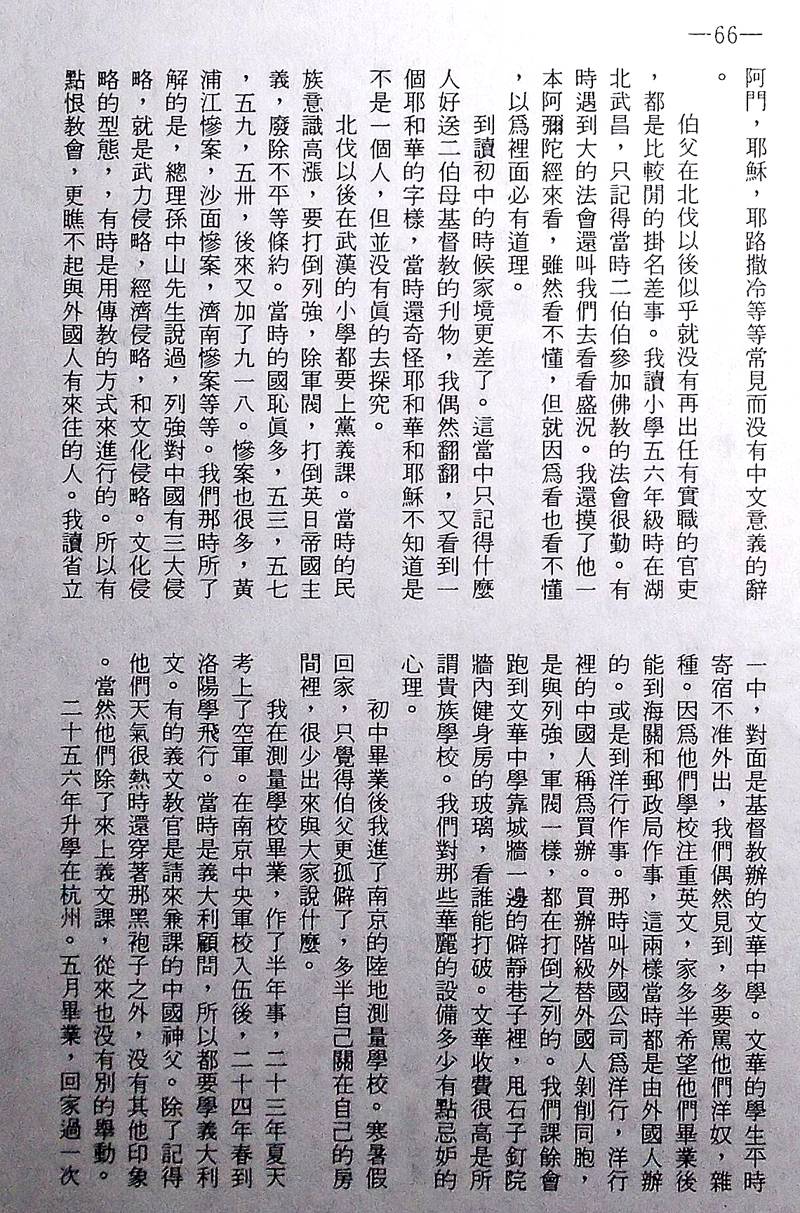 —66—
阿門，耶穌，耶路撒冷等等常見而没有中文意義的辭
。
伯父在北伐以後似乎就没有再出任有實職的官吏
，都是比較閒的掛名差事。我讀小學五六年級時在湖
北武昌，只記得當時二伯伯參加佛教的法會很勤。有
時遇到大的法會還叫我們去看看盛況。我還摸了他一
本阿彌陀經來看，雖然看不懂，但就因爲看也看不懂
，以爲裡面必有道理。
到讀初中的時候家境更差了。這當中只記得什麼
人好送二伯母基督教的刋物，我偶然翻翻，又看到一
個耶和華的字樣，當時還奇怪耶和華和耶穌不知道是
不是一個人，但並没有眞的去探究。
北伐以後在武漢的小學都要上黨義課。當時的民
族意識高漲，要打倒列強，除軍閥，打倒英日帝國主
義，廢除不平等條約。當時的國恥眞多，五三，五七
，五九，五卅，後來又加了九一八。慘案也很多，黃
浦江慘案，沙面慘案，濟南慘案等等。我們那時所了
解的是，總理孫中山先生說過，列強對中國有三大侵
略，就是武力侵略，經濟侵略，和文化侵略。文化侵
略的型態，，有時是用傳教的方式來進行的。所以有
點恨教會，更瞧不起與外國人有來往的人。我讀省立
一中，對面是基督教辦的文華中學。文華的學生平時
寄宿不准外出，我們偶然見到，多要罵他們洋奴，雜
種。因爲他們學校注重英文，家多半希望他們畢業後
能到海關和郵政局作事，這兩樣當時都是由外國人辦
的。或是到洋行作事。那時叫外國公司爲洋行，洋行
裡的中國人稱爲買辦。買辦階級替外國人剝削同胞，
是與列強，軍閥一樣，都在打倒之列的。我們課餘會
跑到文華中學靠城牆一邊的僻靜巷子裡，甩石子釘院
牆內健身房的玻璃，看誰能打破。文華收費很高是所
謂貴族學校。我們對那些華麗的設備多少有點忌妒的
心理。
初中畢業後我進了南京的陸地測量學校。寒暑假
回家，只覺得伯父更孤僻了，多半自己關在自己的房
間裡，很少出來與大家說什麼。
我在測量學校畢業，作了半年事，二十三年夏天
考上了空軍。在南京中央軍校入伍後，二十四年春到
洛陽學飛行。當時是義大利顧問，所以都要學義大利
文。有的義文教官是請來兼課的中國神父。除了記得
他們天氣很熱時還穿著那黑袍子之外，没有其他印象
。當然他們除了來上義文課，從來也没有別的舉動。
二十五六年升學在杭州。五月畢業，回家過一次